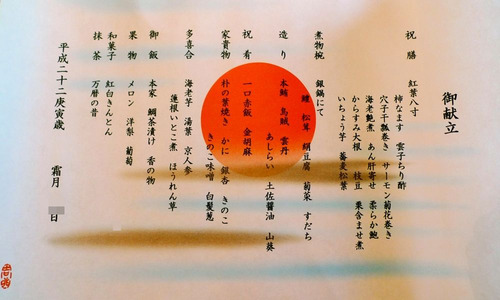 御献立
祝 膳 紅葉八寸
柿なます 雲子ちり酢
穴子干瓢巻き サーモン菊花巻き
海老艶煮 あん肝寄せ 柔らか鮑
からすみ大根 枝豆 栗含ませ煮
いちょう芋 蕎麦松葉
煮物椀 銀鍋にて
鱧 松茸 絹豆腐 菊菜 すだち
造り 本鮪 烏賊 雲丹
あしらい 土佐醤油 山葵
祝肴 一口赤飯 金胡麻
家貴物 朴の葉焼き かに 銀杏 きのこ
きのこ味噌 白髪葱
多喜合 海老芋 湯葉 京人参
蓮根いとこ煮 ほうれん草
御飯 本家 鯛茶漬け 香の物
果物 メロン 洋梨 葡萄
和菓子 紅白きんとん
抹茶 万暦の昔
平成二十二庚寅歳 霜月 日